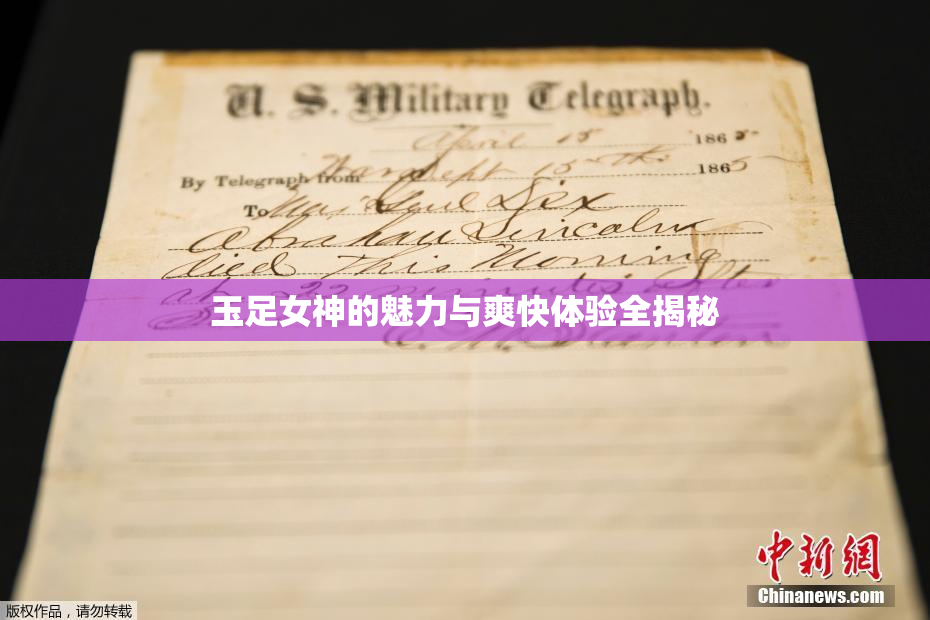 U. S. Military Telegraph.
April 15 1865
By Telegraph from War Dept 15th 1865
To Maj Genl Dix
Abraham Lincoln
died This Morning
at 22 minutes after
玉足女神的魅力与爽快体验全揭秘
E. M. Stanton
中新网
Chinanews.com
版权作品，请勿转载